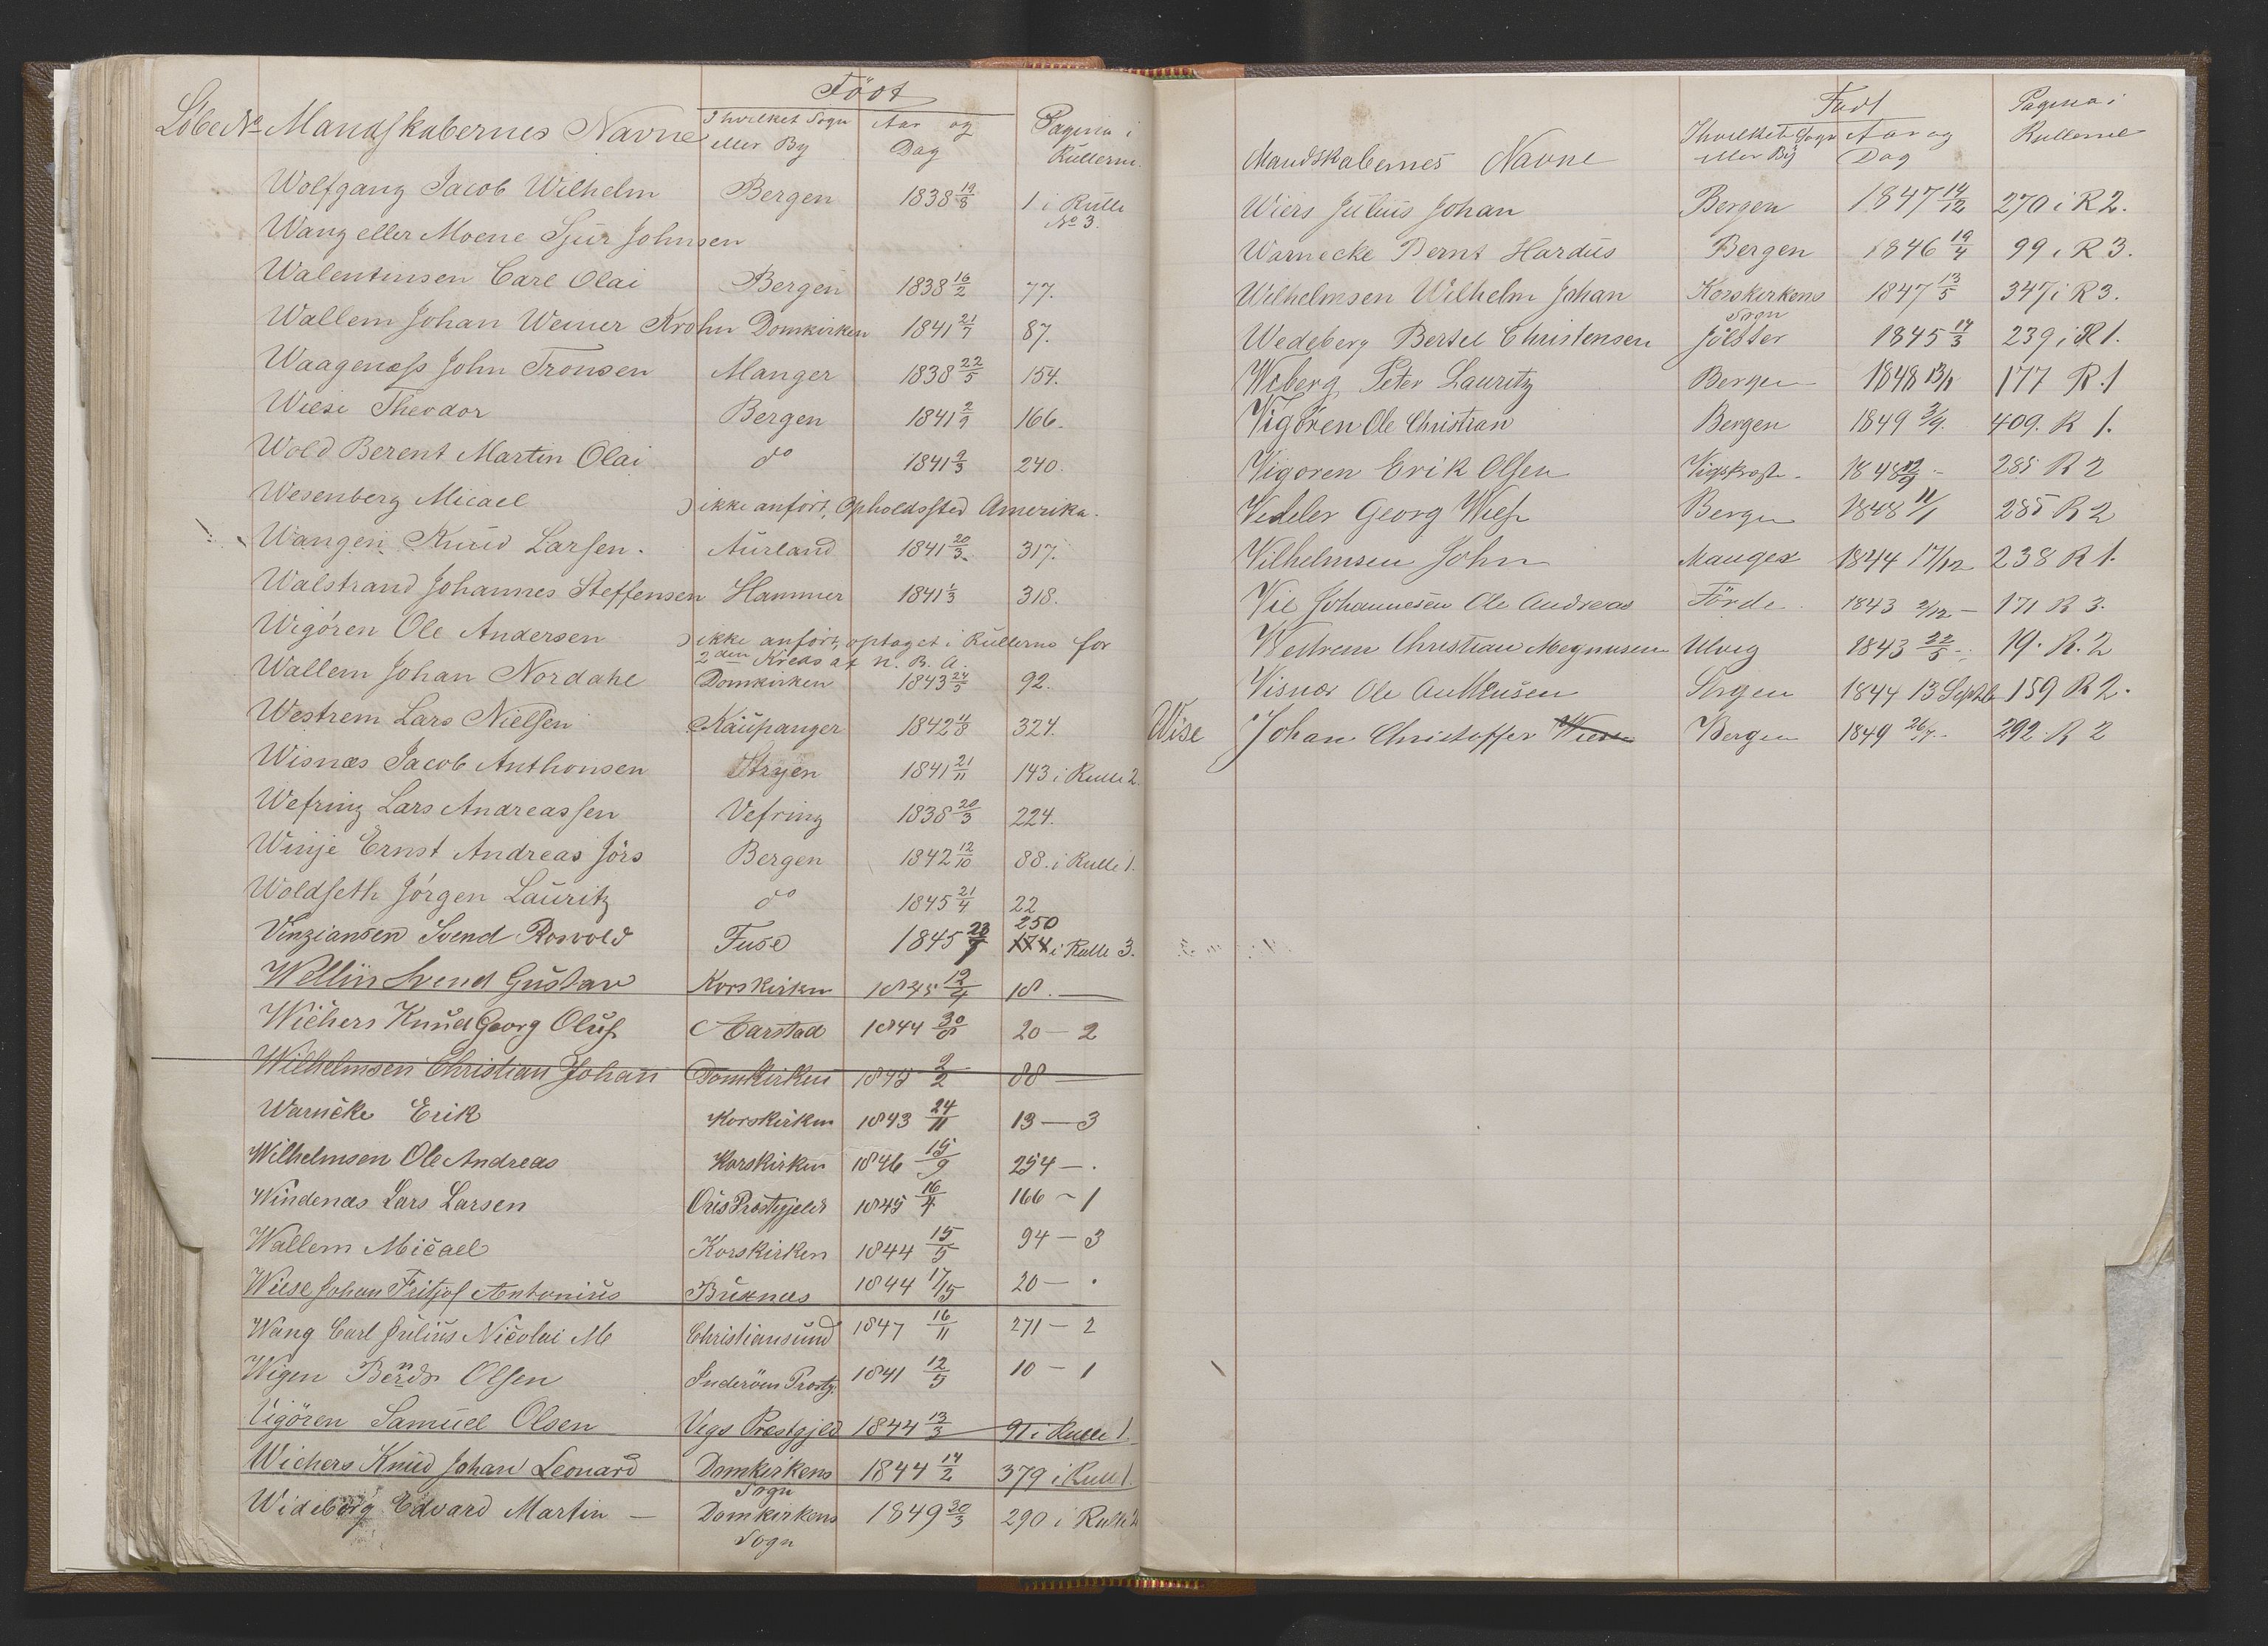 Födt
Löbe No Mandskabernes Navne I hvilket Sogn Aar og Pagina i
eller By Dag Rullerne.
Wolfgang Jacob Wilhelm Bergen 1838 19/8 1 i Rulle
No 3.
Wang eller Moene Sjur Johnsen
Walentinsen Carl Olai Bergen 1838 16/2 77.
Wallem Johan Werner Krohn Domkirken 1841 21/7 87.
Waagenæss John Tronsen Manger 1838 22/5 154.
Wiese Theodor Bergen 1841 2/9 166.
Wold Berent Martin Olai do 1841 9/3 240.
Wesenberg Micael ) ikke anført, Opholdssted Amerika.
Wangen Knud Larsen. Aurland 1841 20/3 317.
Walstrand Johannes Steffensen Hammer 1841 1/3 318.
Wigören Ole Andersen ) ikke anført, optaget i Rullerne for
2den Kreds af n. B. A.
Wallem Johan Nordahl Domkirken 1843 24/5 92.
Westrem Lars Nielsen Kaupanger 1842 4/8 324.
Wisnæs Jacob Anthonsen Stryen 1841 21/11 143 i Rulle 2.
Wefring Lars Andreassen Vefring 1838 20/3 224.
Winje Ernst Andreas Jörs Bergen 1842 12/10 88. i Rulle 1.
Woldseth Jörgen Lauritz do 1845 21/4 22
250
Vinziansen Svend Rosvold Fuse 1845 174 i Rulle 3.
Wellin Svend Gustav Korskirken 1845 12/4 18. —
Wichers Knud Georg Oluf Aarstad 1844 30/8 20 — 2
Wilhelmsen Christian Johan Domkirken 1845 2/2 88 —
Warncke Erik Korskirken 1843 24/11 13 — 3
Wilhelmsen Ole Andreas Korskirken 1846 15/9 254 — .
Windenæs Lars Larsen Oris Prestegjeld 1845 16/4 166 — 1
Wallem Micael Korskirken 1844 15/5 94 — 3
Wiese Johan Fritjof Antonius Buxnæs 1844 17/5 20 — .
Wang Carl Julius Nicolai M Christiansund 1847 16/11 271 — 2
Wigen Olsen Inderöens Prostg. 1841 12/5 10 — 1
Vigören Samuel Olsen Vigs Prestgjeld 1844 13/3 91 i Rulle 1.
Wichers Knud Johan Leonard Domkirkens 1844 14/2 379 i Rull 1.
Sogn
Wideberg Edvard Martin — Domkirkens 1849 30/3 290 i Rulle 2
Sogn
Født Pagina i
I hvilket Sogn Aar og Rullerne
Mandskabernes Navne eller By Dag
Wiers Julius Johan Bergen 1847 14/12 270 i R 2.
Warnecke Bernt Hardus Bergen 1846 19/4 99 i R 3.
Wilhelmsen Wilhelm Johan Korskirkens 1847 13/5 347 i R 3.
Sogn
Wedeberg Bertel Christensen Jölster 1845 14/3 239 i R 1.
Wiberg Peter Lauritz Bergen 1848 177 R. 1
Vigören Ole Christian Bergen 1849 3/9. 409. R 1.
Vigoren Erik Olsen 1848 285 R 2
Vedeler Georg Wiese Bergen 1848 11/1 285 R 2
Vilhelmsen John Manger 1844 17/12 238 R 1.
Vie Johannesen Ole Andreas Förde 1843 2/12 — 171 R 3.
Westrem Christian Magnusen Ulvig 1843 22/5 19. R. 2
Visnæs Ole Anthensen Strgen 1844 13 Septb 159 R 2.
Wise Johan Christoffer Wiese Bergen 1849 26/7 292 R 2